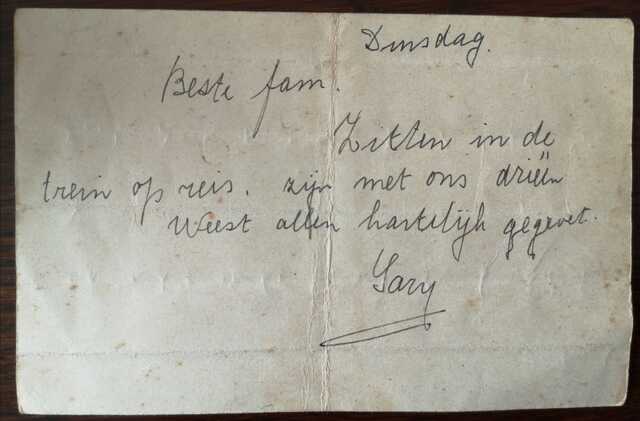 Dinsdag.
Beste fam.
Zitten in de
trein op reis. zijn met ons drieën
Weest allen hartelijk gegroet.